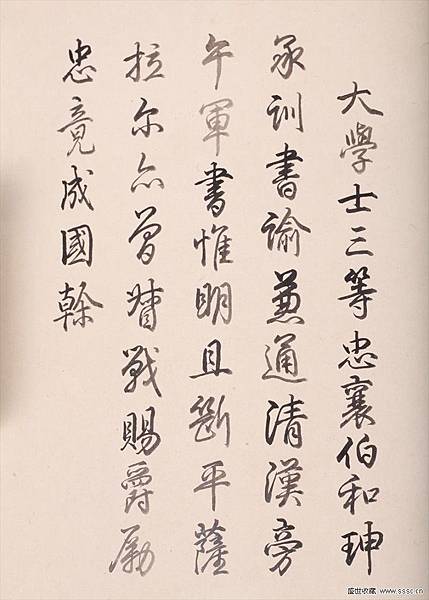 大學士三等忠襄伯和珅
承訓書諭兼通清漢旁
午軍書惟明且斷平薩
拉爾亦曾督戰賜爵勵
忠竟成國幹
盛世收藏 www.sssc.cn